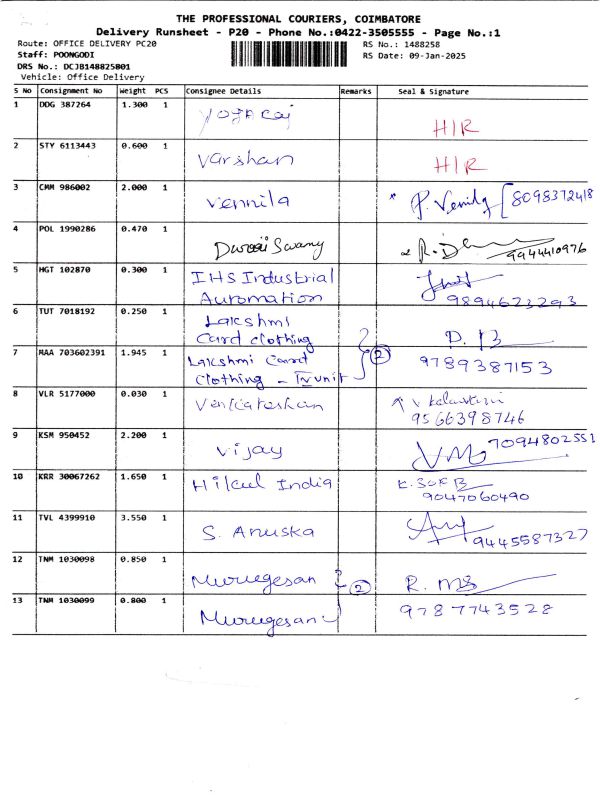 THE PROFESSIONAL COURIERS, COIMBATORE
Delivery Runsheet - P20 - Phone No.:0422-3505555 - Page No.:1
Route: OFFICE DELIVERY PC20
RS No.: 1488258
Staff: POONGODI
RS Date: 09-Jan-2025
DRS No.: DCJB148825801
Vehicle: Office Delivery
S No Consignment No Weight PCS Consignee Details Remarks Seal & Signature
1 DDG 387264 1.300 1 Yogaraj H/R
2 STY 6113443 0.600 1 Varshan H/R
3 CMM 986002 2.000 1 Vennila P. Vennila 8098372418
4 POL 1990286 0.470 1 Duraiswamy
9944410976
5 HGT 102870 0.300 1 IHS Industrial
Automation 9894623293
6 TUT 7018192 0.250 1 Lakshmi
Card clothing
7 MAA 703602391 1.945 1 Lakshmi Card 2 9789387153
clothing - IV unit
8 VLR 5177000 0.030 1 Venkateshan
9566398746
9 KSM 950452 2.200 1 Vijay 7094802551
10 KRR 30067262 1.650 1 Hikul India
9047060490
11 TVL 4399910 3.550 1 S. Anuska
9445587327
12 TNM 1030098 0.850 1 Murugesan 2
13 TNM 1030099 0.800 1 Murugesan 9787743528